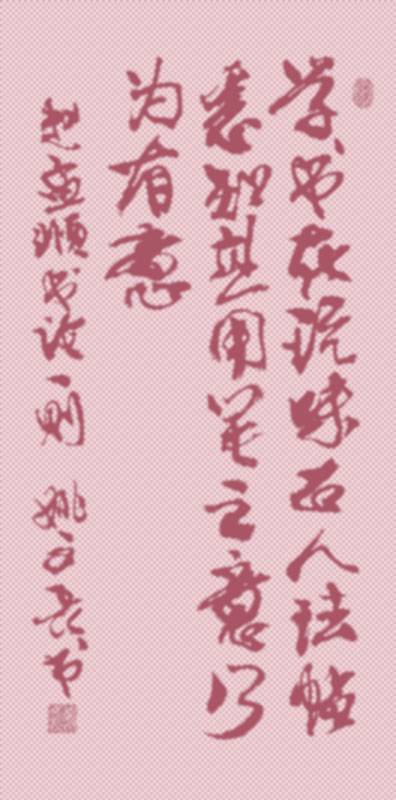 学书在玩味古人法帖
悉知其用笔之意乃
为有意
赵孟頫书论一则 姚文书